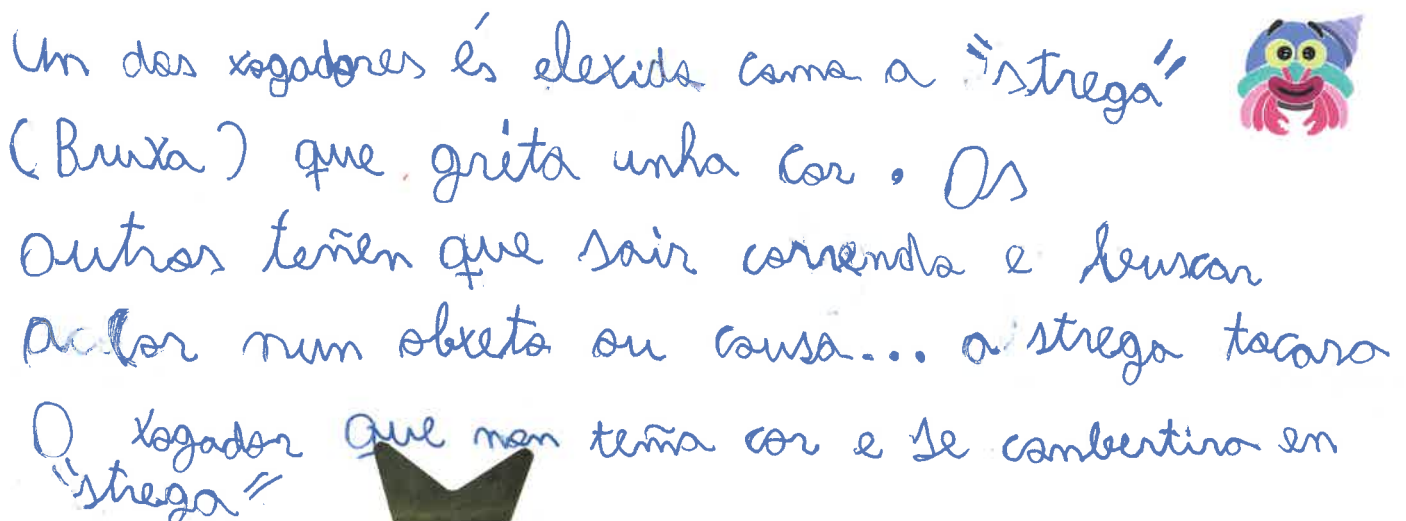 Un dos xogadores és elexido como a "strega"
(Bruxa) que grita unha cor. Os
outros teñen que sair correndo e buscar
a cor nun obxeto ou cousa... a strega tocara
O xogador que non teña cor e se conbertira en
"strega"